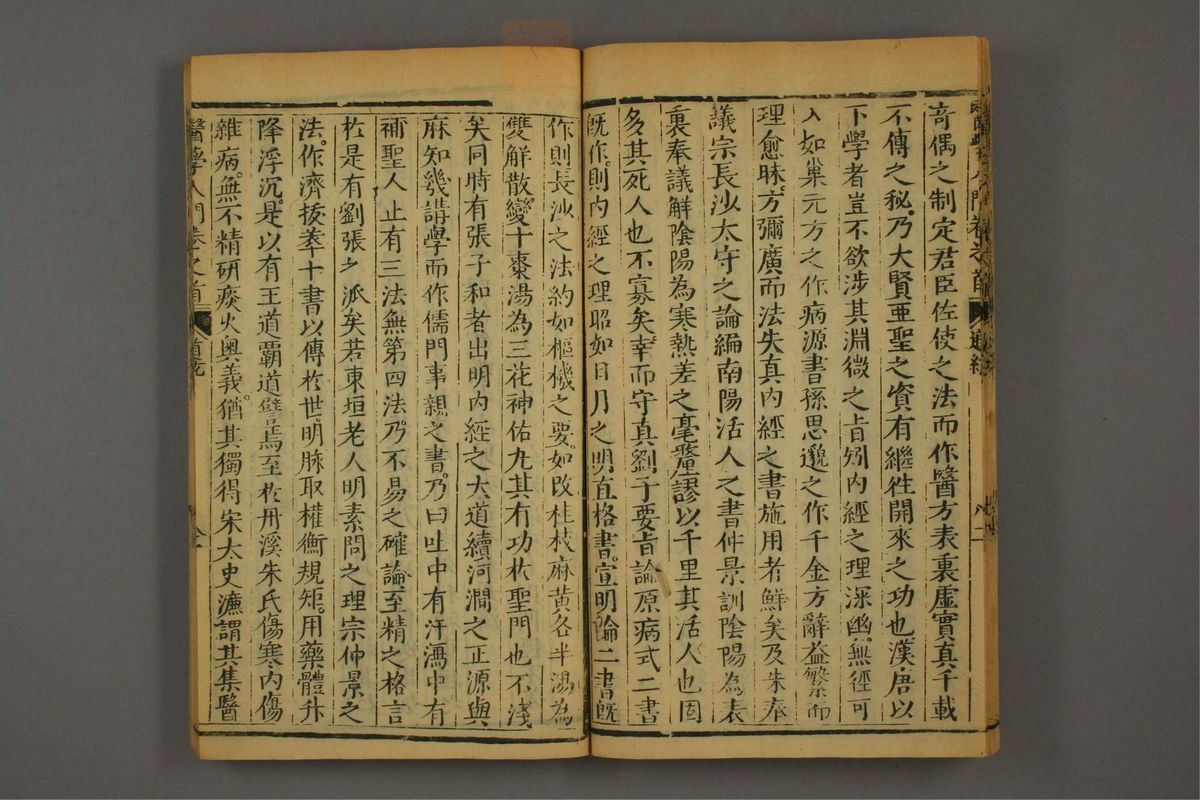 奇偶之制定君臣佐使之法而作醫方表裏虛實真千載
不傳之秘乃大賢亜聖之資有繼徃開來之功也漢唐以
下學者豈不欲涉其淵微之旨矧内經之理深幽無徑可
入如巢元方之作病源書孫思邈之作千金方辭益繁而
理愈昧方彌廣而法失真内經之書施用者鮮矣及朱奉
議宗長沙太守之論編南陽活人之書仲景訓陰陽為表
裏奉議解陰陽為寒熱差之毫釐謬以千里其活人也固
多其死人也不寡矣幸而守真劉子要旨論原病式二書
既作則内經之理昭如日月之明直格書宣明論二書既
作則長沙之法約如樞機之要如改桂枝麻黃各半湯為
雙解散變十棗湯為三花神佑丸其有功於聖門也不淺
矣同時有張子和者出明内經之大道續河澗之正源與
麻知幾講學而作儒門事親之書乃曰吐中有汗瀉中有
補聖人止有三法無第四法乃不易之確論至精之格言
於是有劉張之派矣若東垣老人明素問之理宗仲景之
法作濟拔萃十書以傳於世明脉取權衡規矩用藥體升
降浮沉是以有王道霸道譬焉至於丹溪朱氏傷寒内傷
雜病無不精研痰火奥義猶其獨得宋太史濂謂其集醫
醫學入門卷之首